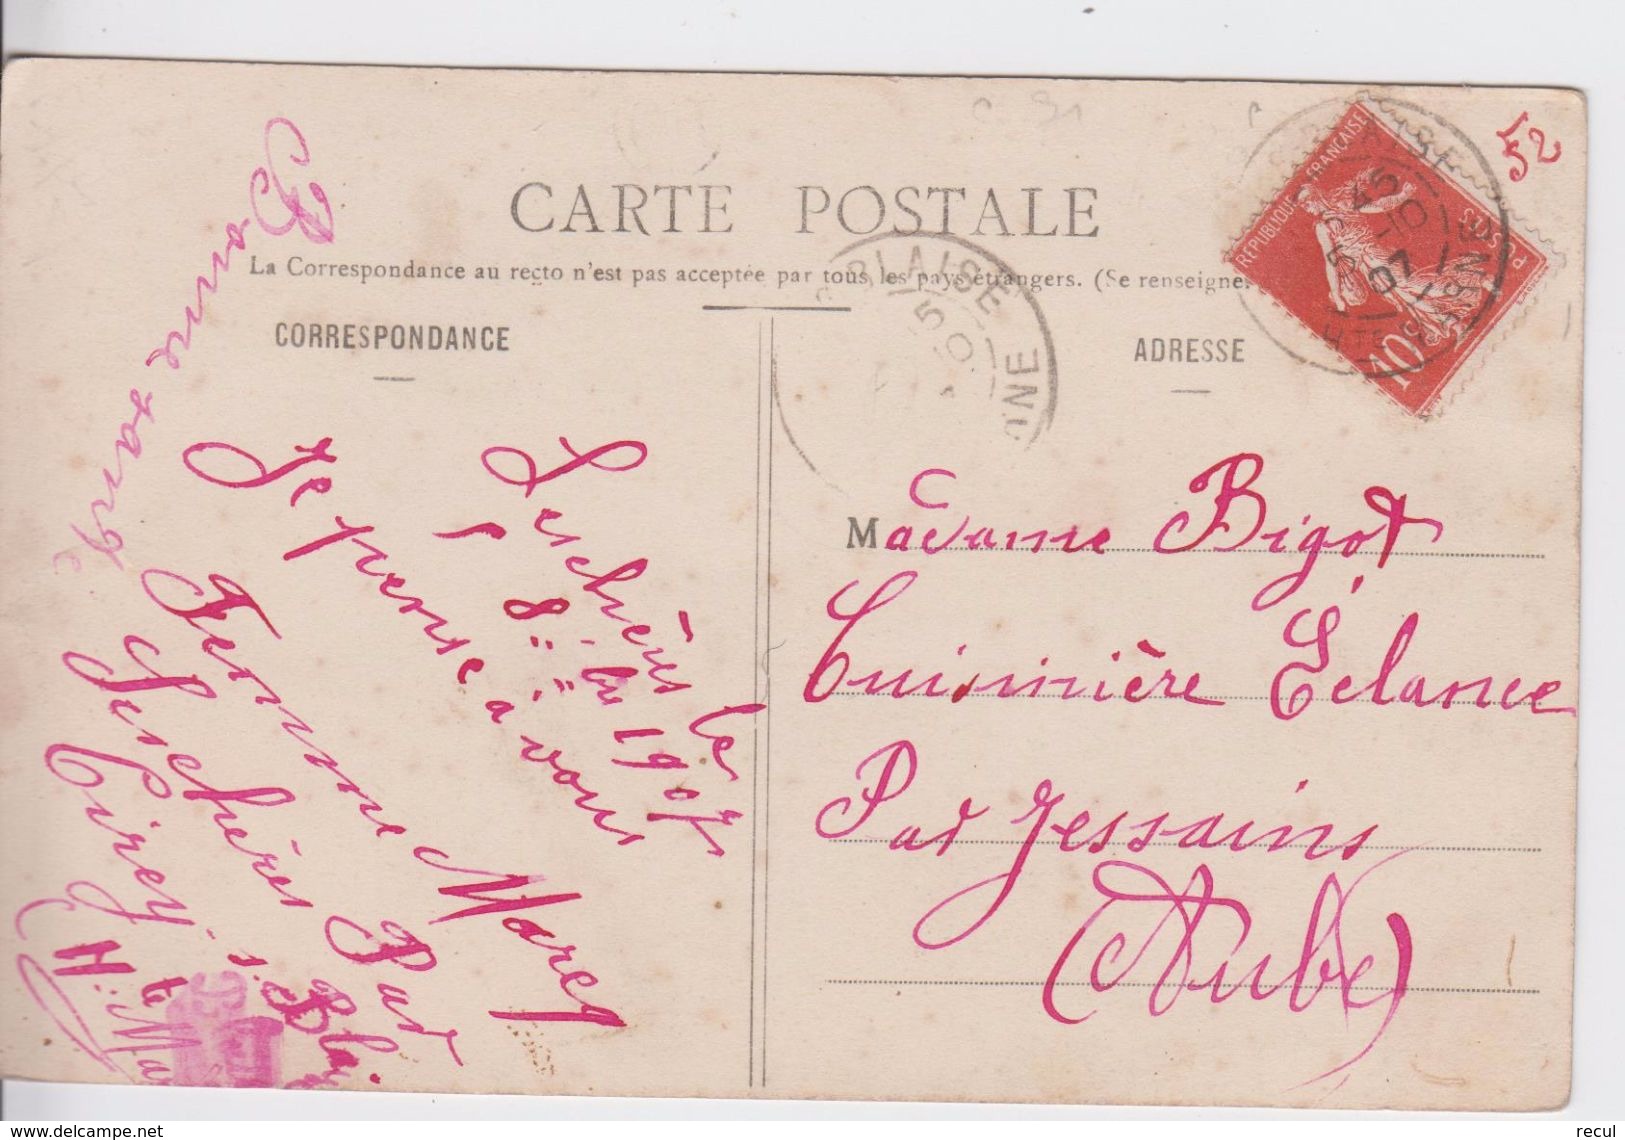 CARTE POSTALE
La Correspondance au recto n'est pas acceptée par tous les pays étrangers. (Se renseigner
CORRESPONDANCE
ADRESSE
52
RÉPUBLIQUE FRANÇAISE
POSTES
10
5 -10
07
BLAISE
Leschères le
8 1907
Je pense à vous
Femme Maret
Leschères Par
Cirey s. Bla
(Hte Ma
Madame Bigot
Cuisinière Éclance
Par Jessains
(Aube)
delcampe.net
recul